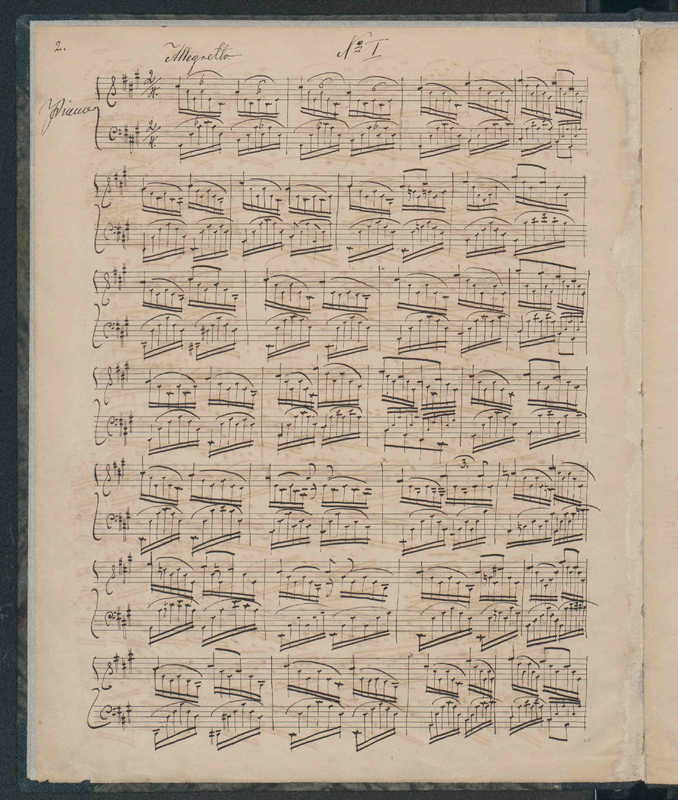 2. Allegretto Nº I
Piano
2/4 6 6 6 6
2/4 6 6 6 6
3